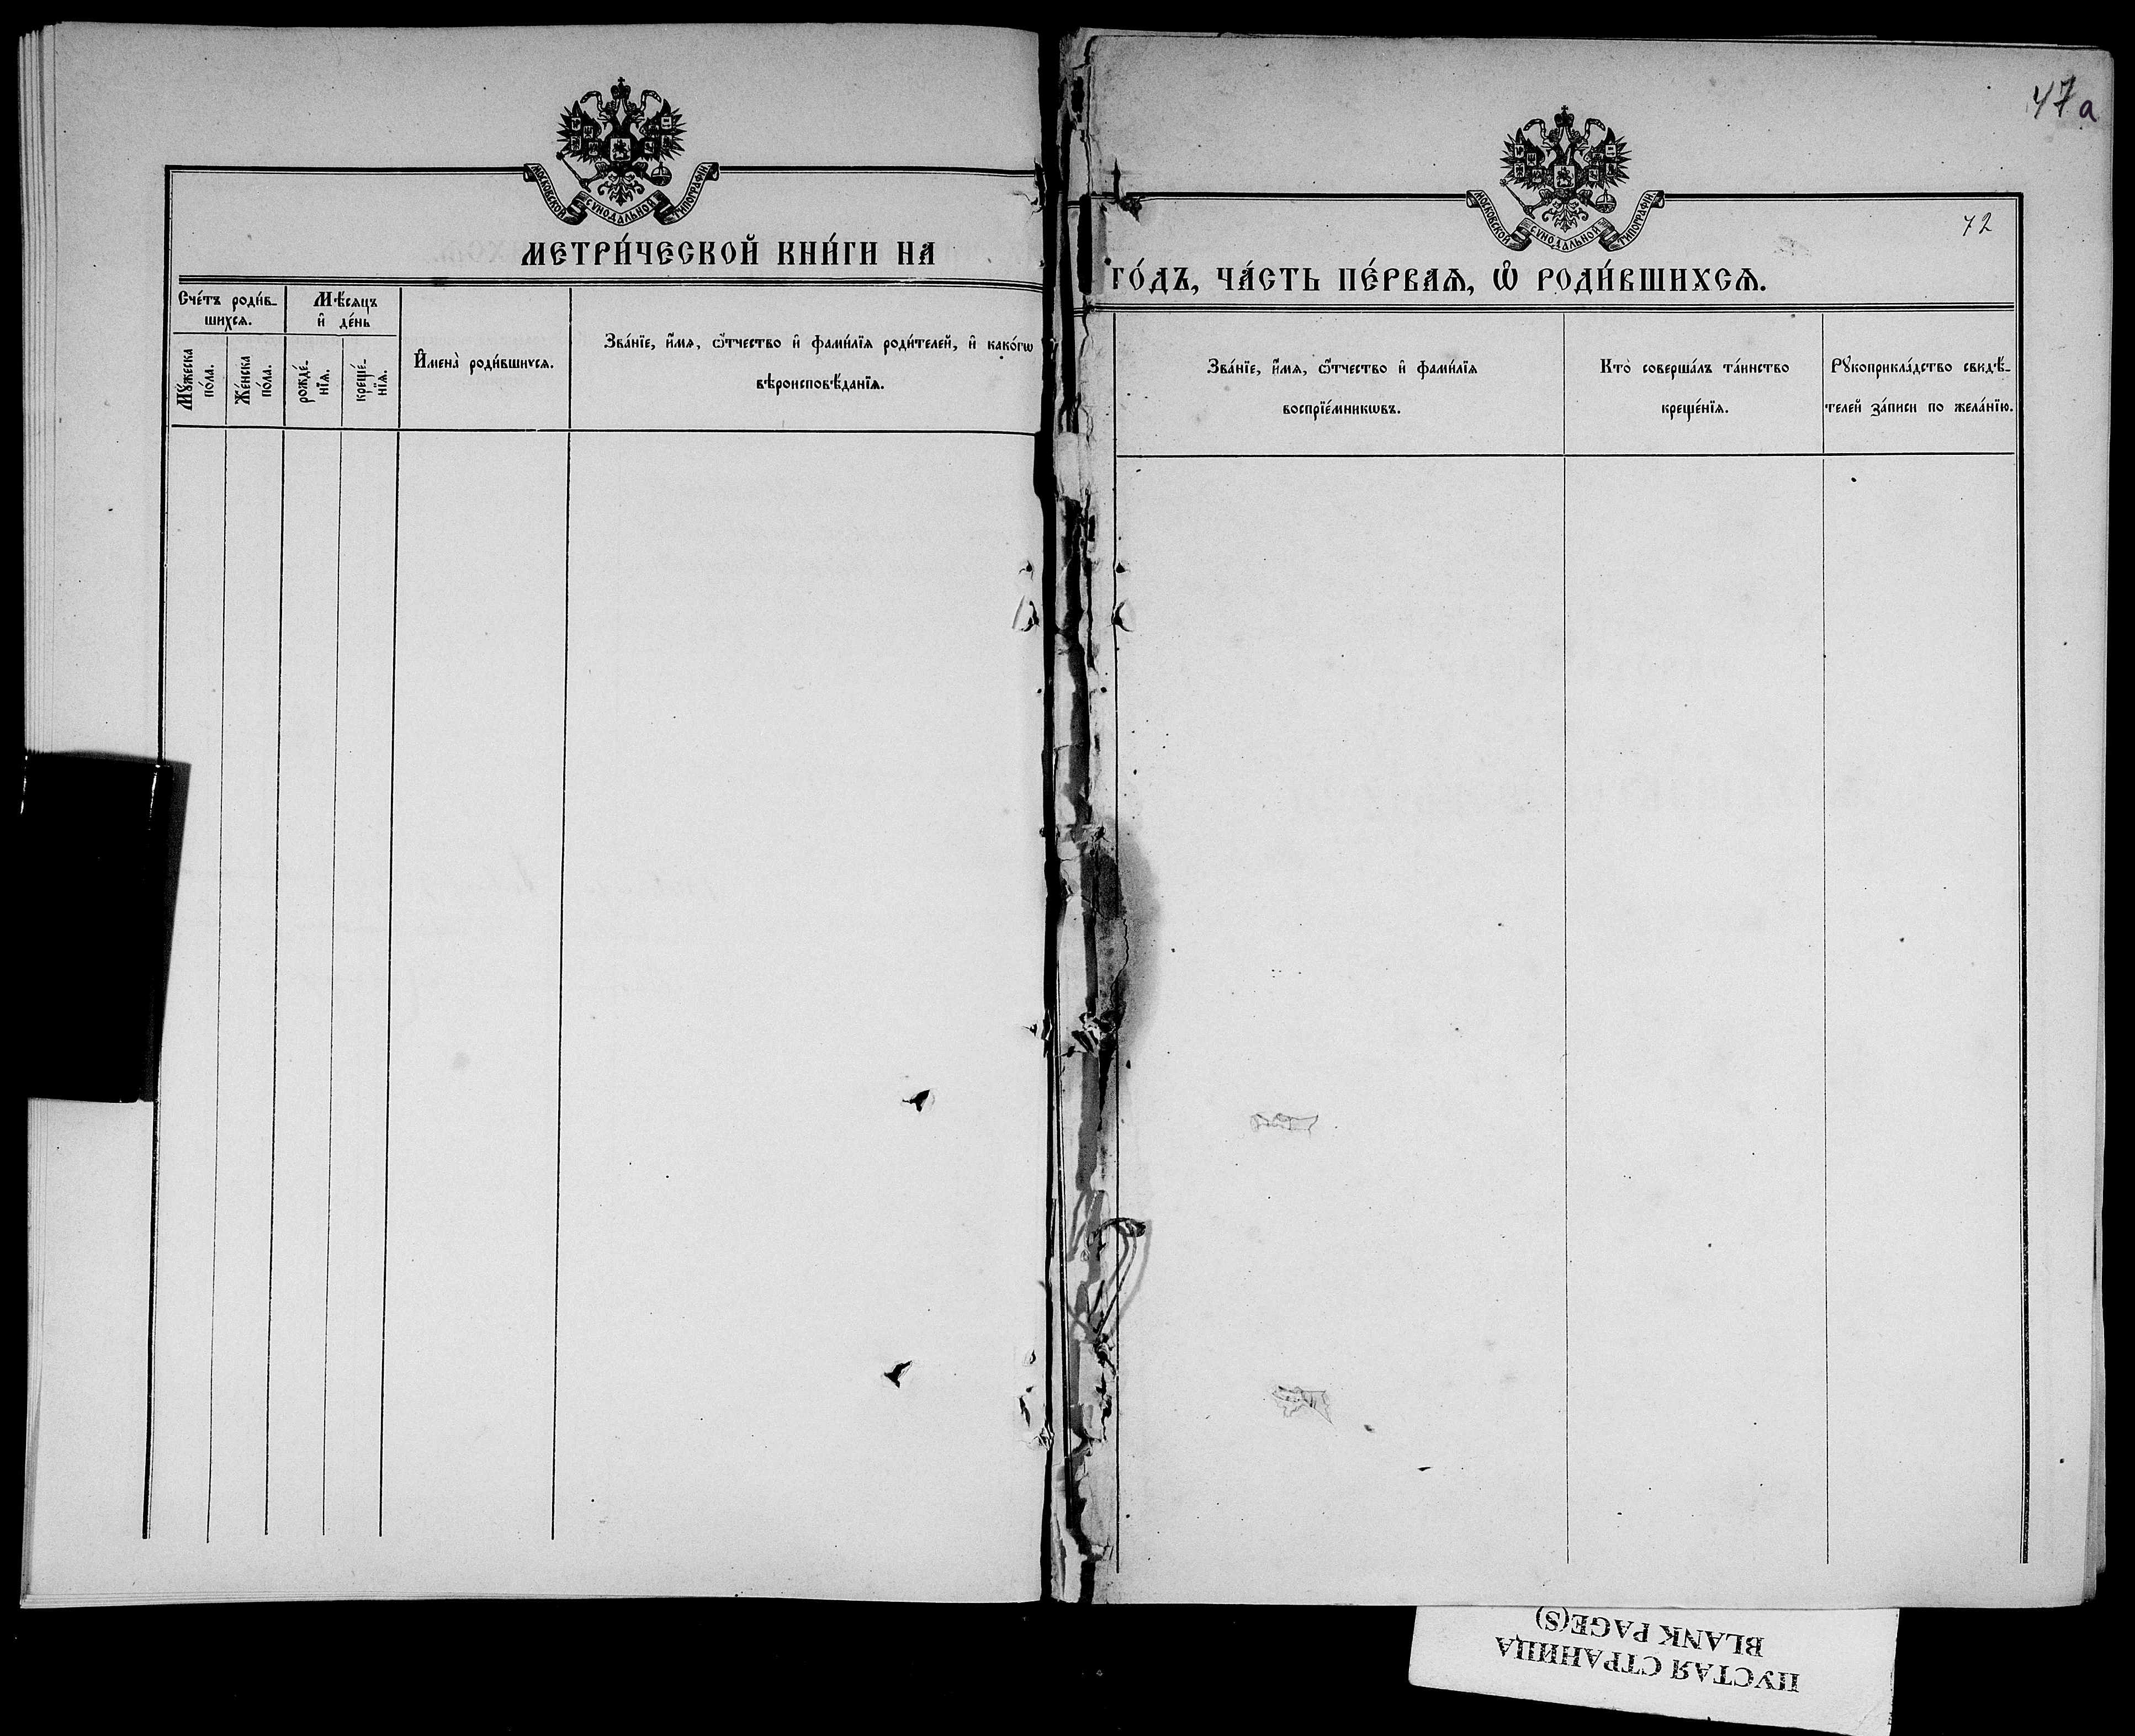 47а
МОСКОВСКОЙ СѴНОДАЛЬНОЙ ТИПОГРАФІИ.
МЕТРИ́ЧЕСКОЙ КНИ́ГИ НА
Сче́тъ роди́в-
шихсѧ.
Мѣ́сѧцъ
и҆ де́нь
Мꙋ́жеска
по́ла.
Же́нска
по́ла.
рожде́-
нїѧ.
креще́-
нїѧ.
И҆мена̀ роди́вшихсѧ.
Зва́нїе, и҆́мѧ, ѻ҆́тчество и҆ фами́лїѧ роди́телей, и҆ како́гѡ
вѣроисповѣ́данїѧ.
МОСКОВСКОЙ СѴНОДАЛЬНОЙ ТИПОГРАФІИ.
72
ГО́ДЪ, ЧА́СТЬ ПЕ́РВАѦ, Ѡ҆ РОДИ́ВШИХСѦ.
Зва́нїе, и҆́мѧ, ѻ҆́тчество и҆ фами́лїѧ
воспрїе́мникѡвъ.
Кто̀ соверша́лъ та́инство
креще́нїѧ.
Рꙋкоприкла́дство свидѣ́-
телей за́писи по жела́нїю.
ПУСТАЯ СТРАНИЦА
BLANK PAGE(S)